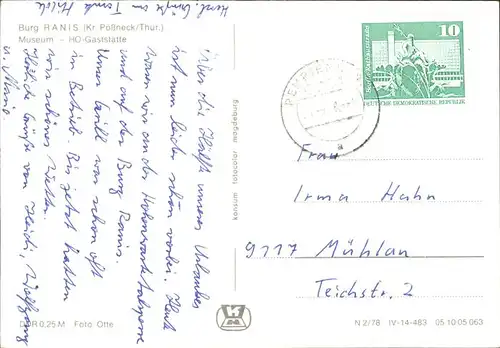 Burg RANIS (Kr Pößneck/Thur.)
Museum – HO-Gaststätte
Herzl. Grüße an Tante Hilde
Über die Hälfte unseres Urlaubes
ist nun leider schon vorbei. Heute
waren wir an der Hohenwartetalsperre
und auf der Burg Ranis.
Unser Grill war schon oft
in Betrieb. Bis jetzt hatten
wir schönes Wetter.
Herzliche Grüße von Heidi, Wolfgang
u.
DDR 0,25 M Foto Otte
konsum fotocolor magdeburg
10
DEUTSCHE DEMOKRATISCHE REPUBLIK
a
Frau
Irma Hahn
9117 Mühlau
Teichstr. 2
N 2/78 IV-14-483 05 10 05 063